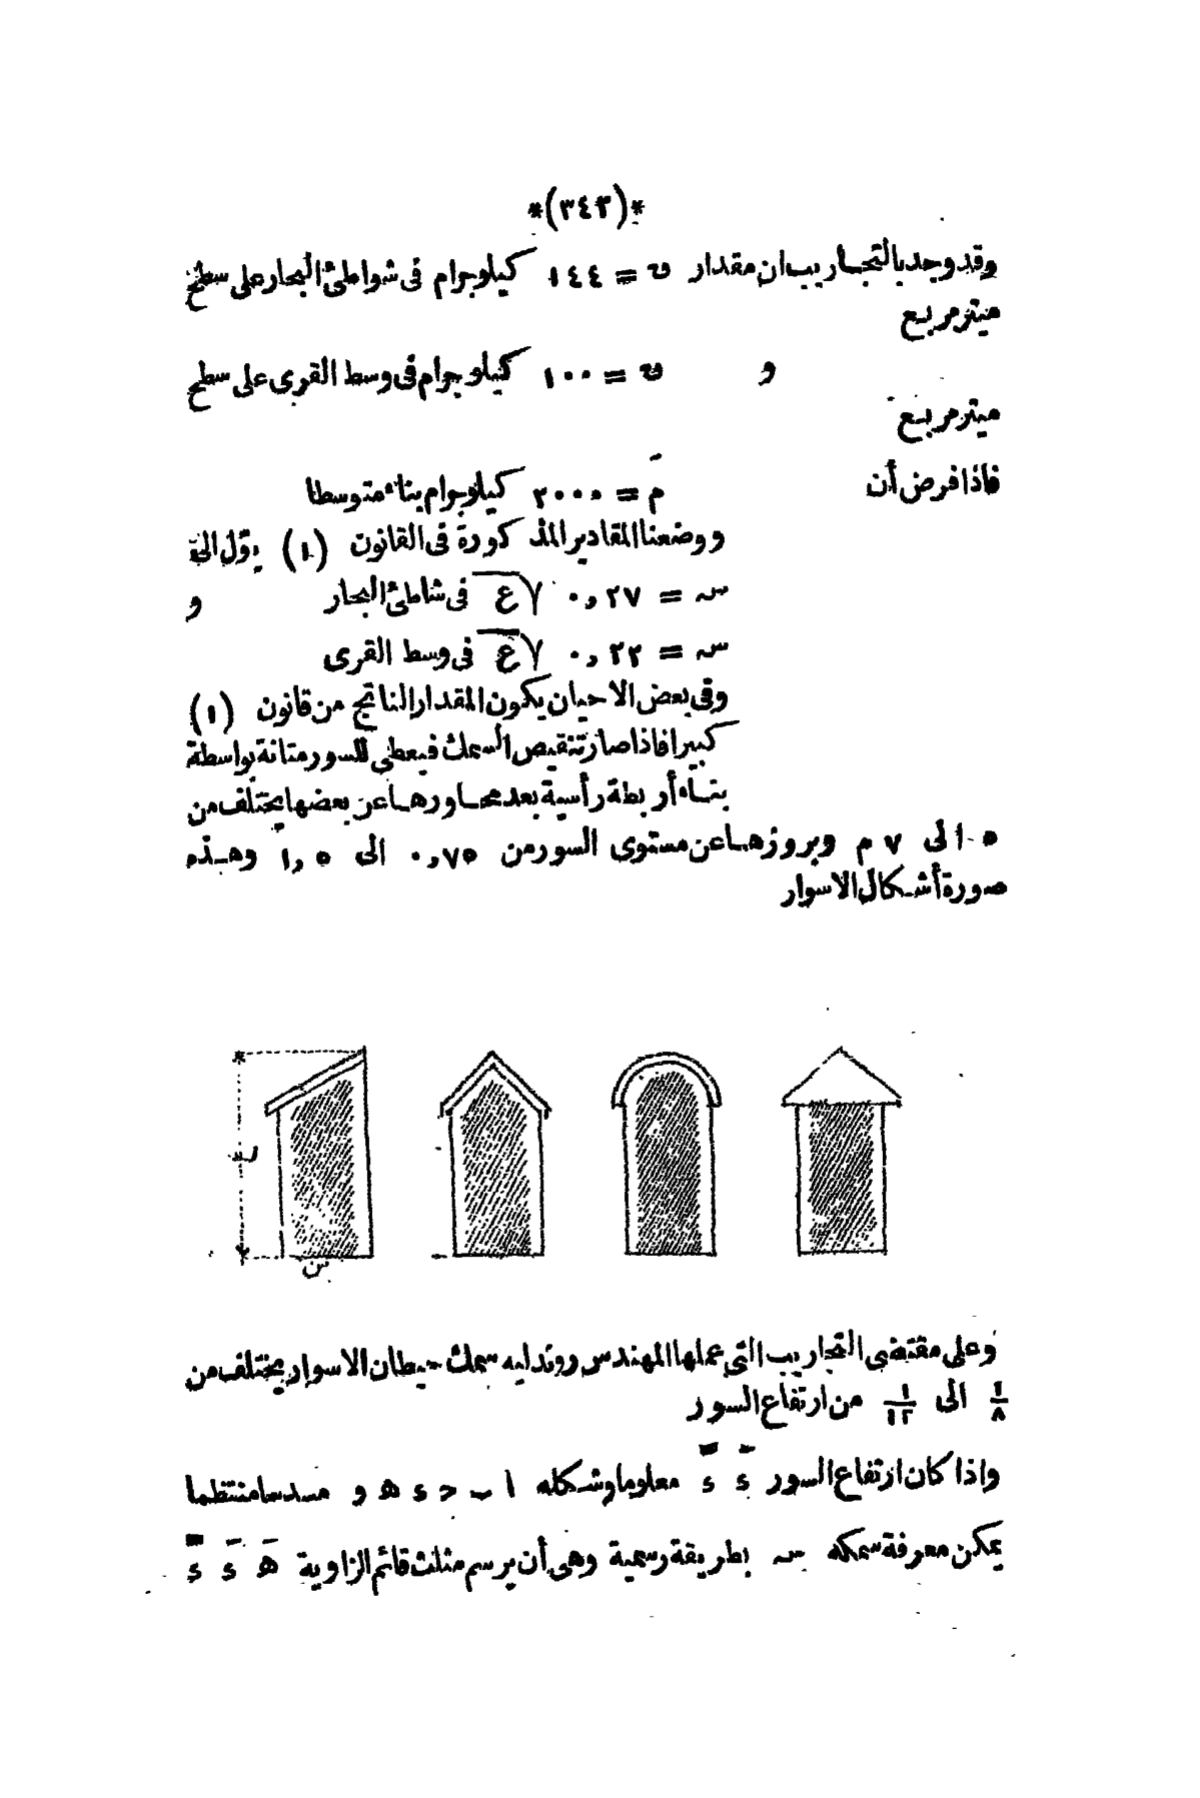 *(٣٤٣)*
وقد وجد بالتجاريب ان مقدار ں = ١٤٤ كيلوجرام فى شواطئ البحار على سطح
ميتر مربع
و ں = ١٠٠ كيلوجرام فى وسط القرى على سطح
ميتر مربع
فاذا فرض أن مَ = ٢٠٠٠ كيلوجرام بناء متوسطا
ووضعنا المقادير المذكورة فى القانون (١) يؤل الى
سہ = ٠,٢٧ √ع فى شاطئ البحار و
سہ = ٠,٢٢ √ع فى وسط القرى
وفى بعض الاحيان يكون المقدار الناتج من قانون (١)
كبيرا فاذا صار تنقيص السمك فيعطى للسور متانة بواسطة
بناء أربطة رأسية بعد محاورها عن بعضها يختلف من
٥ الى ٧ م وبروزها عن مستوى السور من ٠,٧٥ الى ١,٥ وهذه
صورة أشكال الاسوار
س
وعلى مقتضى التجاريب التى عملها المهندس روندليه سمك حيطان الاسوار يختلف من
١/٨ الى ١/١٢ من ارتفاع السور
واذا كان ارتفاع السور ءَ ءً معلوما وشكله ا ب ح ء ه و مسدسا منتظما
يمكن معرفة سمكه سہ بطريقة رسمية وهى أن يرسم مثلث قائم الزاوية هَ ءَ ءً